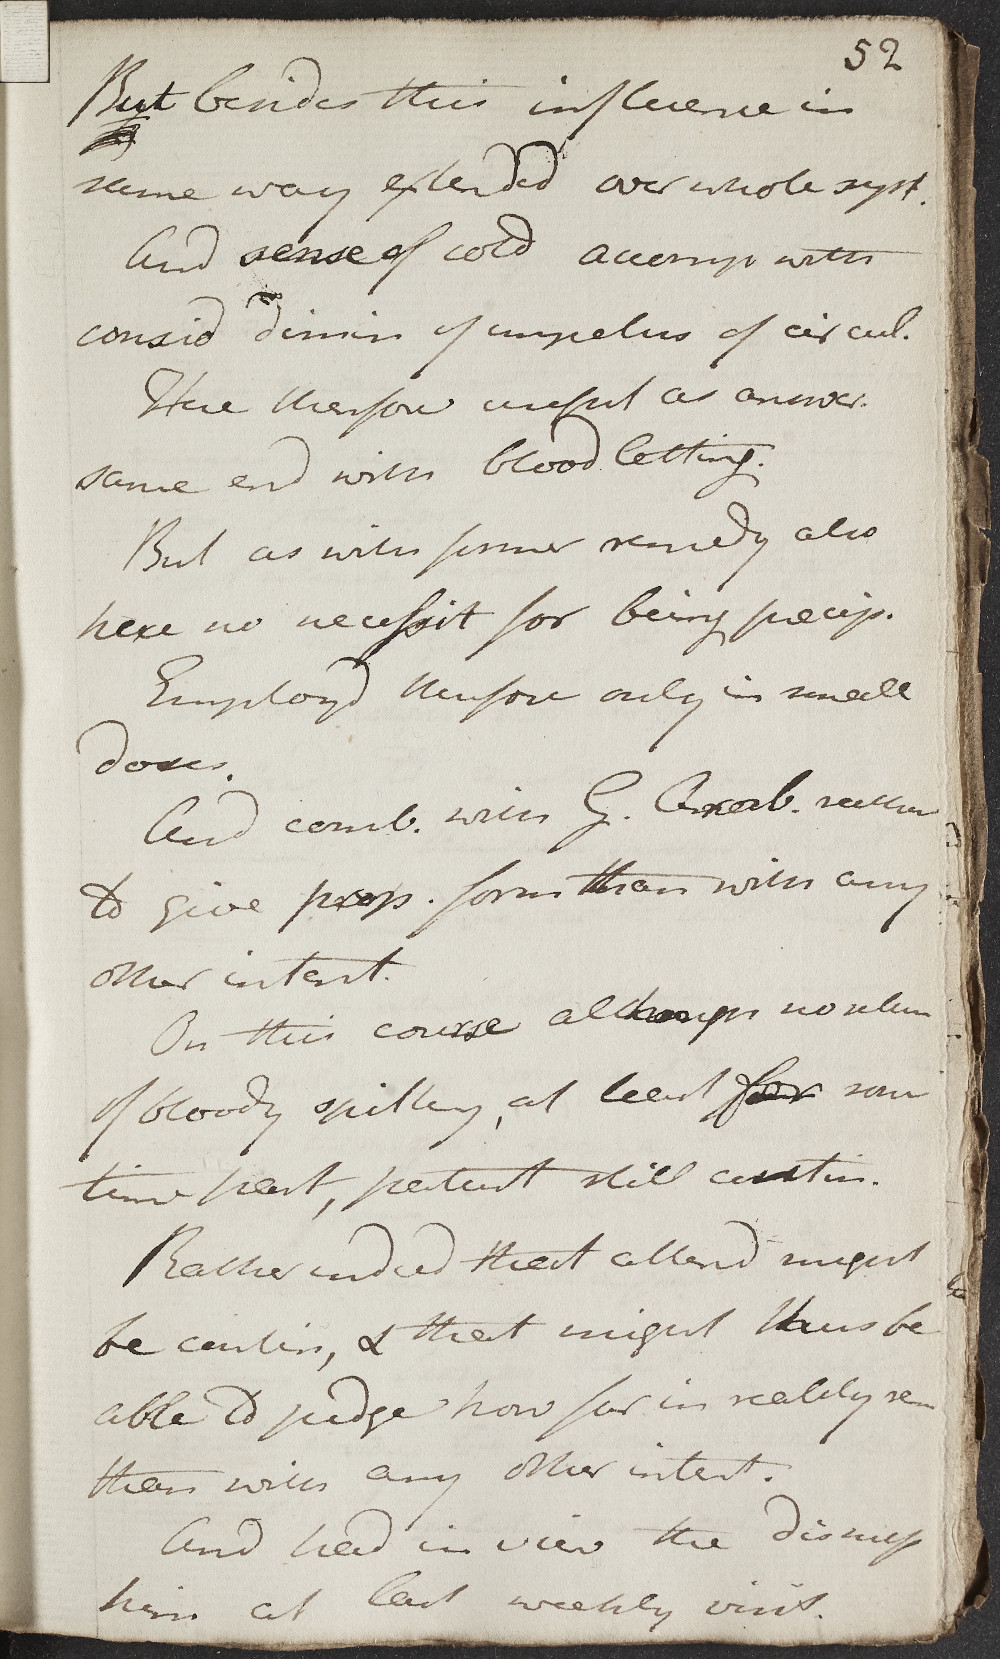 52
But besides this influence in
same way extended over whole syst.
And sense of cold accomp with
consid dimin of impetus of circul.
Here therefore useful as answer.
same end with blood letting.
But as with former remedy also
here no necessit for being precip.
Employd therefore only in small
doses.
And comb. with G. Arab. rather
to give prop. form than with any
other intent.
On this course although no return
of bloody spitting, at least for some
time past, patient still contin.
Rather indeed that attend might
be contin, & that might thus be
able to judge how far in reality rem
than with any other intent.
And had in view the dismiss
him at last weekly visit.